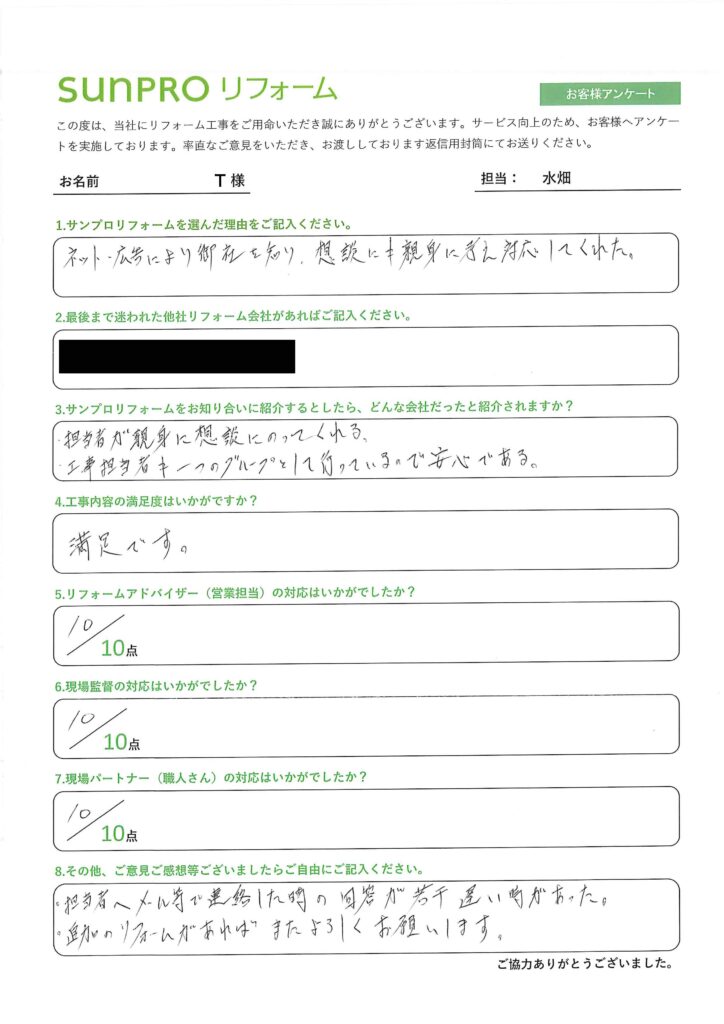 sunpro リフォーム
お客様アンケート
この度は、当社にリフォーム工事をご用命いただき誠にありがとうございます。サービス向上のため、お客様へアンケー
トを実施しております。率直なご意見をいただき、お渡ししております返信用封筒にてお送りください。
お名前 T 様 担当： 水畑
1.サンプロリフォームを選んだ理由をご記入ください。
ネット・広告により御社を知り、想談にも親身に考え対応してくれた。
2.最後まで迷われた他社リフォーム会社があればご記入ください。
3.サンプロリフォームをお知り合いに紹介するとしたら、どんな会社だったと紹介されますか？
・担当者が親身に想談にのってくれる、
・工事担当者も一つのグループとして行っているので安心である。
4.工事内容の満足度はいかがですか？
満足です。
5.リフォームアドバイザー（営業担当）の対応はいかがでしたか？
10/10点
6.現場監督の対応はいかがでしたか？
10/10点
7.現場パートナー（職人さん）の対応はいかがでしたか？
10/10点
8.その他、ご意見ご感想等ございましたらご自由にご記入ください。
・担当者へメール等で連絡した時の回答が若干遅い時があった。
・追加のリフォームがあればまたよろしくお願いします。
ご協力ありがとうございました。